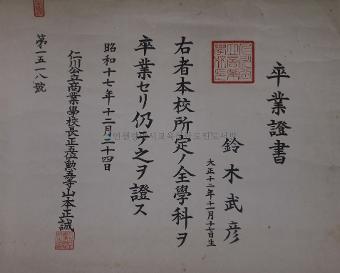 卒業證書
鈴木武彦
大正十二年十一月十七日生
右者本校所定ノ全學科ヲ
卒業セリ仍テ之ヲ證ス
昭和十七年十二月二十四日
仁川公立商業學校長正五位勲五等山本正誠
第一五一八號